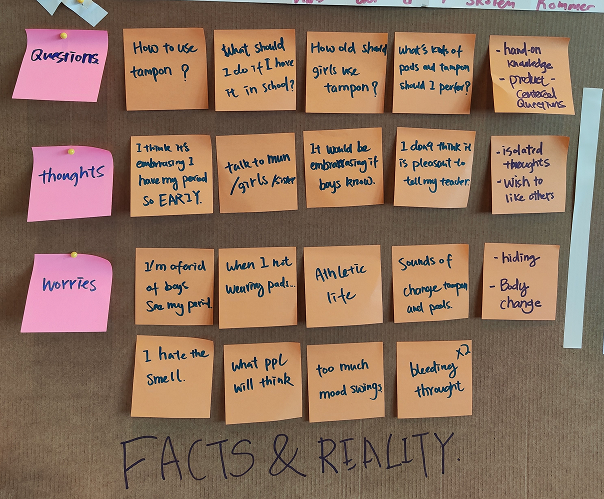 skolen kommer
Questions
How to use
tampon ?
What should
I do if I have
it in school?
How old should
girls use
tampon?
what's kinds of
pads and tampon
should I perfer?
- hand-on
knowledge
- product-
centered
Questions
thoughts
I think it's
embrrasing I
have my period
so EARIY.
talk to mum
/girls/sister
It would be
embrrassing if
boys know.
I don't think it
is pleasant to
tell my teacher.
- isolated
thoughts
- wish to
like others
Worries
I'm aforid
of boys
see my period.
when I not
wearing pads...
Athletic
life
Sounds of
change tampon
and pads.
- hiding
- Body
change
I hate the
smell.
what ppl
will think
too much
mood swings
x2
bleeding
throught
FACTS & REALITY.